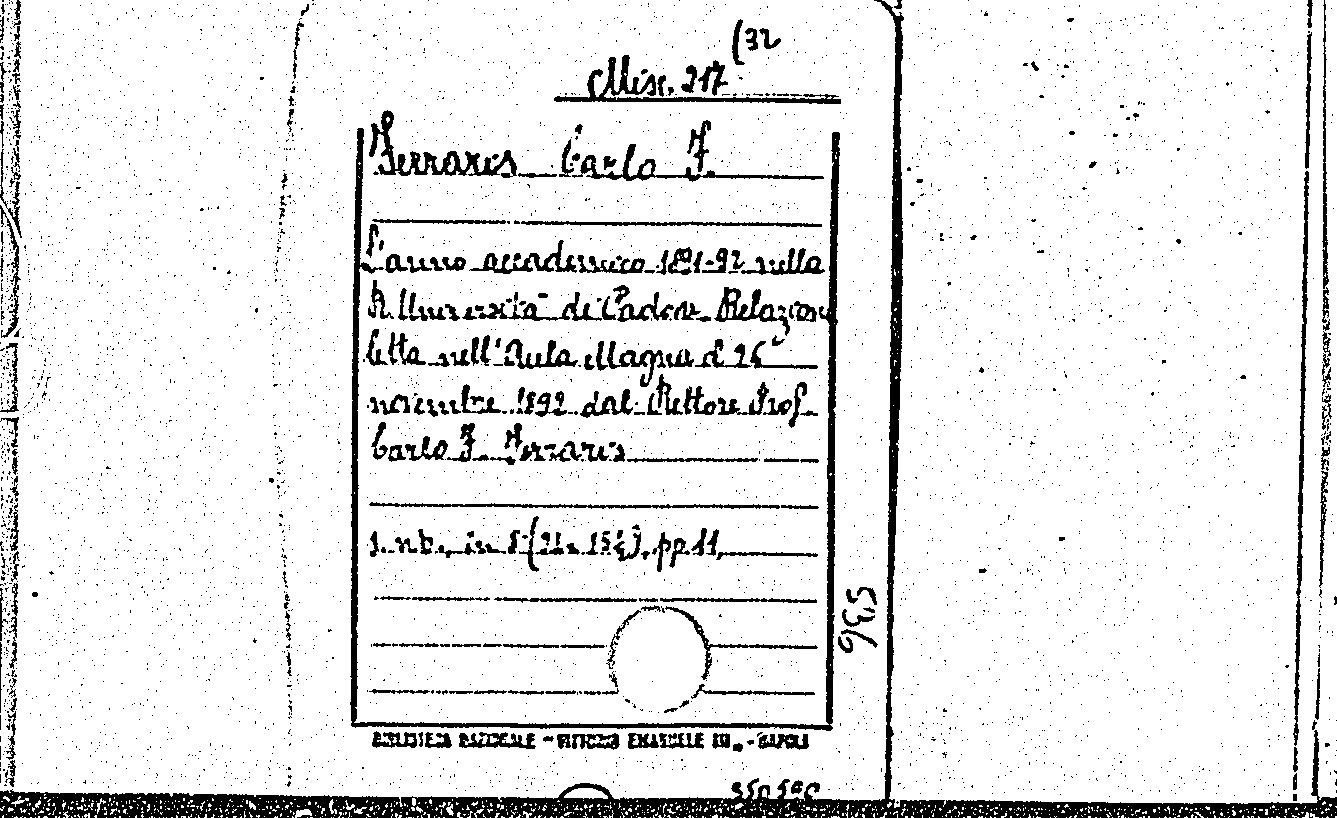 (32
Misc. 217
Ferraris Carlo F.
L'anno accademico 1891-92 nella
R. Università di Padova. Relazione
letta nell'Aula Magna il 26
novembre 1892 dal Rettore Prof.
Carlo F. Ferraris
in 8° (21 x 15½), pp. 11,
536
BIBLIOTECA NAZIONALE - VITTORIO EMANUELE III. - NAPOLI